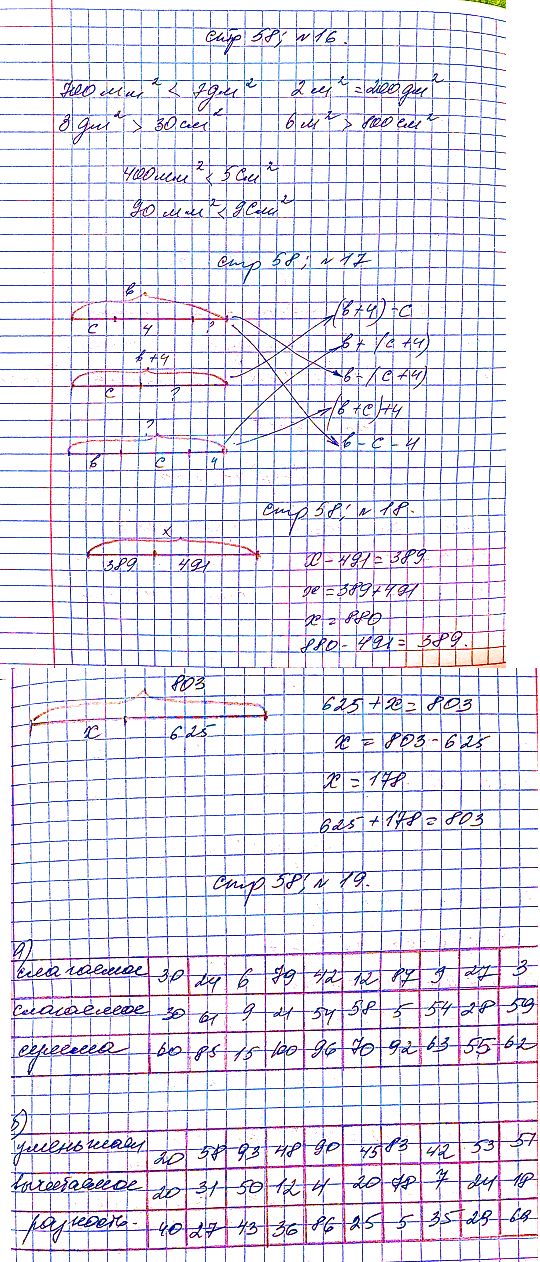 стр 58; №16.
700 мм² < 7 дм² 2 м² = 200 дм²
8 дм² > 30 см² 6 м² > 800 см²
400 мм² < 5 см²
90 мм² < 9 см²
стр 58; №17
в
с 4 ?
(в+4)-с
в+(с+4)
в+4
с ?
в-(с+4)
(в+с)+4
?
в с 4
в-с-4
стр 58; №18.
х
389 491
х-491=389
х=389+491
х=880
880-491=389.
803
х 625
625+х=803
х=803-625
х=178
625+178=803
стр 58; №19.
а)
слагаемое 30 24 6 79 42 12 87 9 27 3
слагаемое 30 61 9 21 54 58 5 54 28 59
сумма 60 85 15 100 96 70 92 63 55 62
б)
уменьшаем 20 58 93 48 90 45 83 42 53 51
вычитаемое 20 31 50 12 4 20 78 7 24 18
разность 40 27 43 36 86 25 5 35 29 69